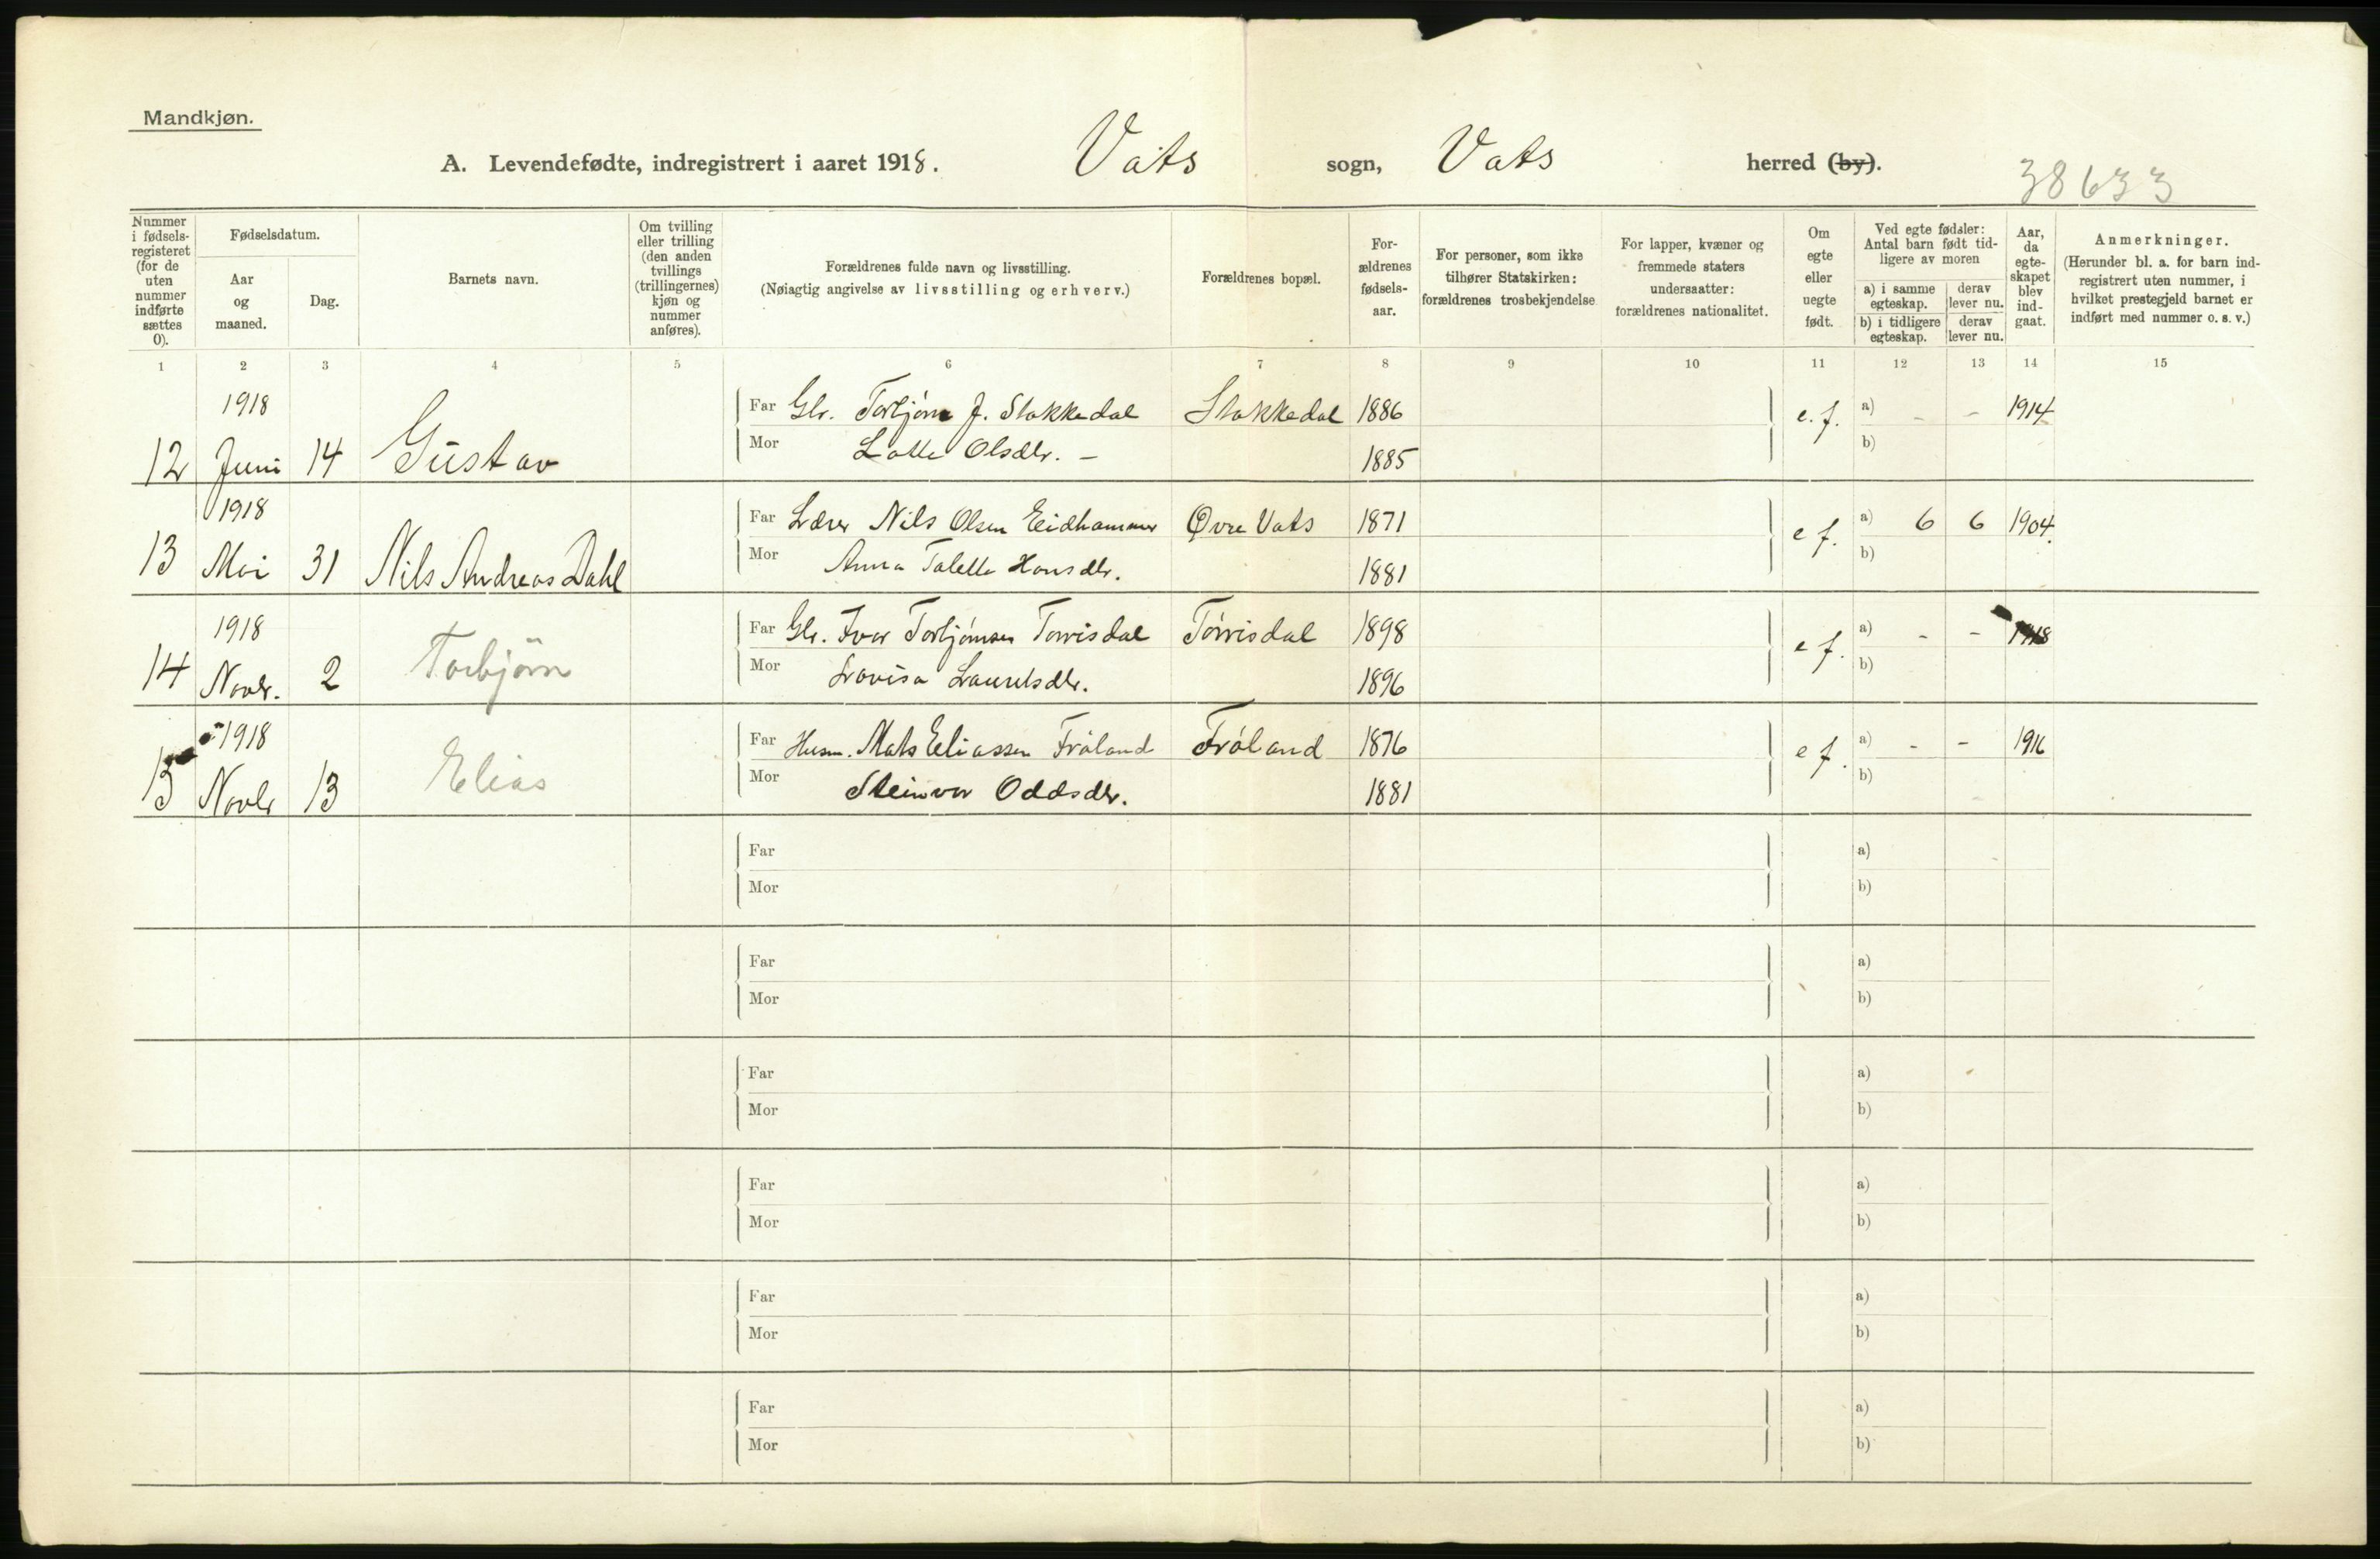 Mandkjøn.
A. Levendefødte, indregistrert i aaret 1918. Vats sogn, Vats herred (by).
38633
Nummer i fødsels-registeret (for de uten nummer indførte sættes 0).
Fødselsdatum.
Aar og maaned.
Dag.
Barnets navn.
Om tvilling eller trilling (den anden tvillings (trillingernes) kjøn og nummer anføres).
Forældrenes fulde navn og livsstilling.
(Nøiagtig angivelse av livsstilling og erhverv.)
Forældrenes bopæl.
For-ældrenes fødsels-aar.
For personer, som ikke tilhører Statskirken: forældrenes trosbekjendelse
For lapper, kvæner og fremmede staters undersaatter: forældrenes nationalitet.
Om egte eller uegte født.
Ved egte fødsler: Antal barn født tid-ligere av moren
a) i samme egteskap.
derav lever nu.
b) i tidligere egteskap.
derav lever nu.
Aar, da egte-skapet blev ind-gaat.
Anmerkninger.
(Herunder bl. a. for barn ind-registrert uten nummer, i hvilket prestegjeld barnet er indført med nummer o. s. v.)
1 2 3 4 5 6 7 8 9 10 11 12 13 14 15
1918 Far Gbr. Torbjørn J. Stakkedal Stakkedal 1886 e. f. a) - - 1914
12 Juni 14 Gustav Mor Olsdtr. - 1885 b)
1918 Far Lærer Nils Olsen Eidhammer Øvre Vats 1871 e f. a) 6 6 1904.
13 Mai 31 Nils Andreas Dahl Mor Anna Talette Hansdtr. 1881 b)
1918 Far Gbr. Ivar Torbjørnsen Tørrisdal Tørrisdal 1898 e f. a) - - 1918
14 Novbr. 2 Torbjørn Mor Lovisa Lauritsdtr. 1896 b)
1918 Far Husm. Mats Eliassen Frøland Frøland 1876 e f. a) - - 1916
15 Novbr 13 Elias Mor Steinvor Oddsdtr. 1881 b)
Far a)
Mor b)
Far a)
Mor b)
Far a)
Mor b)
Far a)
Mor b)
Far a)
Mor b)
Far a)
Mor b)